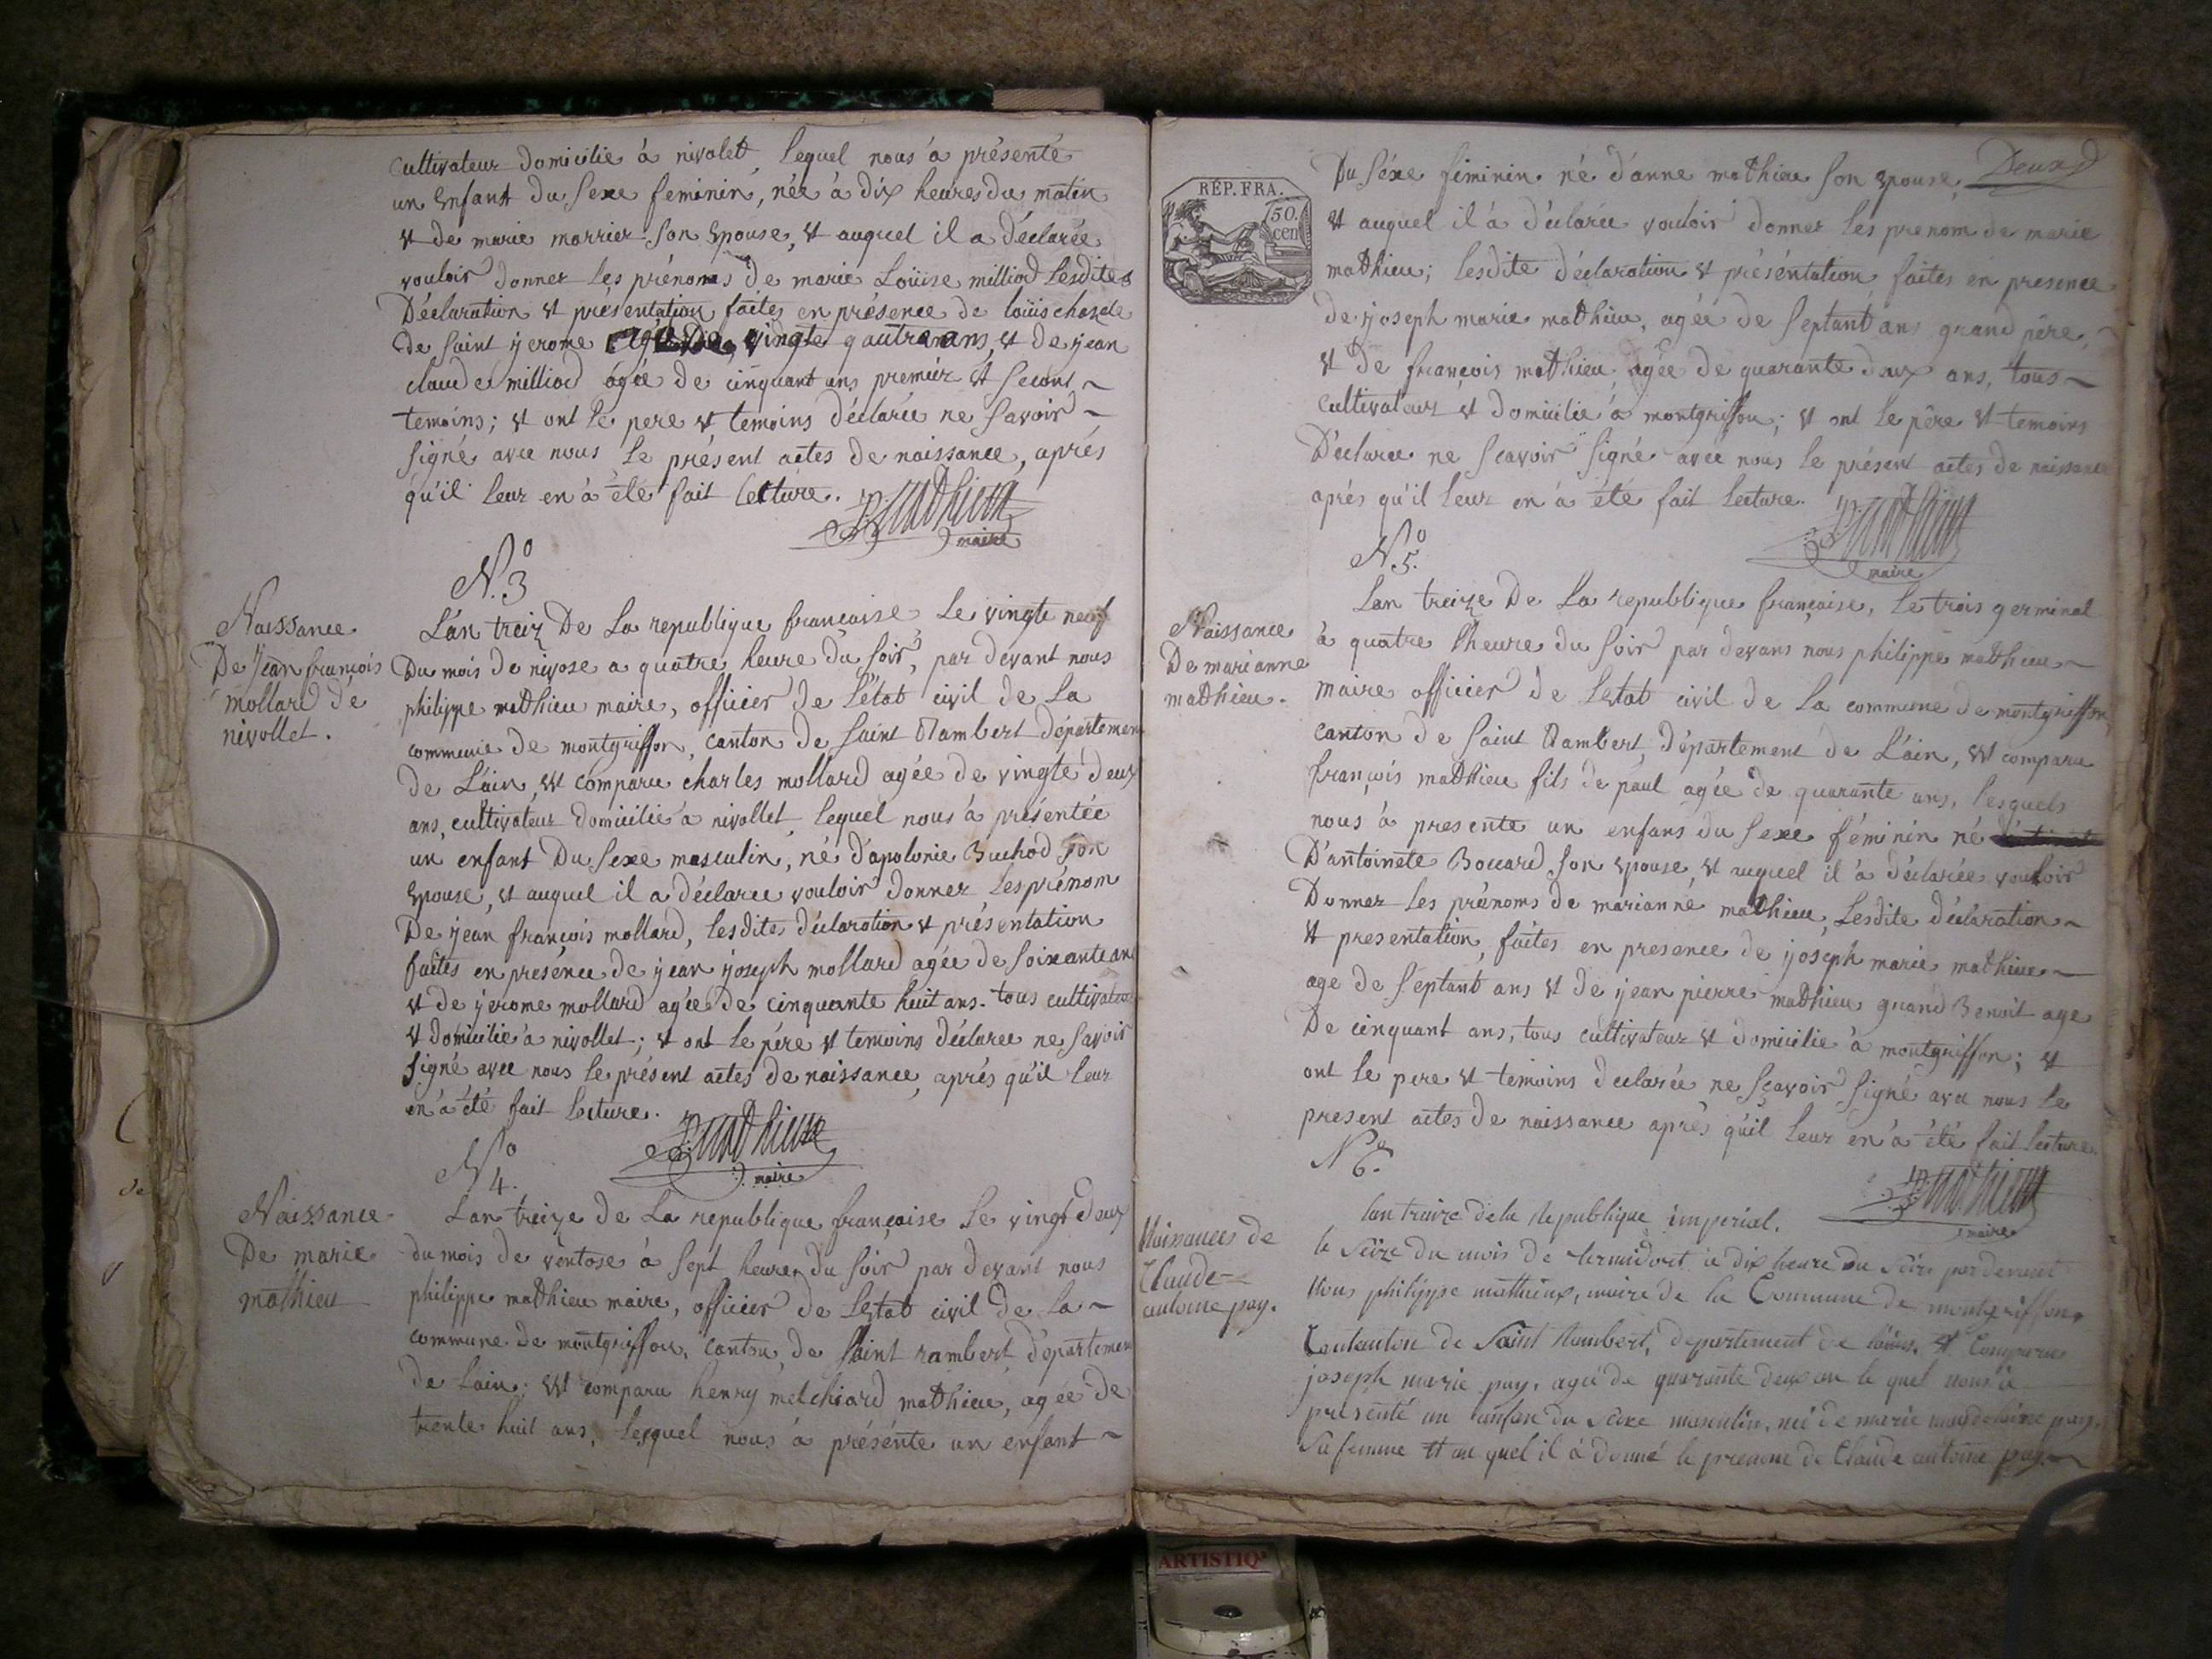 cultivateur domicilie à nivolet, lequel nous à présenté
un enfant du sexe feminin, née à dix heures du matin
et de marie marrier son epouse, et auquel il a déclarée
vouloir donner les prénoms de marie Loüise milliod lesdites
Déclaration et présentation faites en présence de loüis
de saint jerome agée de vingte quatre ans, et de jean
claude milliod agée de cinquant ans premier et second
temoins; et ont le pere et temoins déclarée ne savoir
signé avec nous le présent actes de naissance, aprés
qu'il leur en à été fait lecture.
Pmathieu
maire
N.o 3
Naissance
De jean françois
mollard de
nivollet.
L'an treiz De La republique francaise Le vingte neuf
Du mois de nivose a quatre heure du soir, par devant nous
philippe mathieu maire, officier de L'état civil de La
commune de montgriffon, canton de saint Rambert département
de L'ain, est comparu charles mollard agée de vingte deux
ans, cultivateur domicilié à nivollet, lequel nous à présentée
un enfant Du sexe masculin, né d'apolonie Buchod son
epouse, et auquel il a déclaree vouloir donner les prénom
De jean françois mollard, lesdites déclaration et présentation
faites en presénce de jean joseph mollard agée de soixante ans
et de jerome mollard agée de cinquante huit ans. tous cultivateur
et domicilie à nivollet; et ont le pére et temoins déclaree ne savoir
signé avec nous le présent actes de naissance, aprés qu'il leur
en à été fait lecture.
Pmathieu
maire
N.o 4.
Naissance
De marie
mathieu
Lan treize de La republique françoise Le vingt deux
du mois de ventose à sept heure du soir par devant nous
philippe mathieu maire, officier de Letat civil de La
commune de montgriffon, canton de saint rambert département
de Lain; est comparu henry melchiard mathieu, agée de
trente huit ans, lesquel nous à présénte un enfant
Deux
RÉP. FRA.
50.
cen
Du séxe feminin né d'anne mathieu son epouse,
et auquel il à déclarée vouloir donner les prenom de marie
mathieu; lesdite déclaration et présentation faites en presence
de joseph marie mathieu, agée de septant ans grand pêre,
et de françois mathieu agée de quarante deux ans, tous
cultivateur et domicilié à montgriffon; et ont le pêre et temoins
Déclaree ne scavoir signé avec nous le présent actes de naissance
aprés qu'il leur en à été fait lecture.
Pmathieu
maire
N.o 5.
Naissance
De marianne
mathieu.
Lan treize De La republique française, Le trois germinal
à quatre heure du soir par devans nous philippe mathieu
maire officier de Letat civil de La commune de montgriffon,
canton de saint Rambert, département de L'ain, est comparu
françois mathieu fils de paul agée de quarante ans, lesquels
nous à presente un enfans du sexe féminin né
D'antoinete Bouard son epouse, et auquel il à déclarée vouloir
Donner les prénoms de marianne mathieu, Lesdite déclaration
et presentation, faites en presence de joseph marie mathieu
age de septant ans et de jean pierre mathieu grand Benoit age
De cinquant ans, tous cultivateur et domicilie à montgriffon; et
ont le pere et temoins declarée ne sçavoir signé avec nous le
present actes de naissance aprés qu'il leur en à été fait lecture.
Pmathieu
maire
N.o 6.
Naissances de
Claude
antoine pay.
lan treize de la republique imperial.
le seize du mois de termidort à dix heure du soir par devant
Nous philippe mathieux, maire de la Commune de montgriffon,
de Saint Rambert, departement de et Comparu
joseph marie pay, agé de quarante deux an le quel nous à
présenté un enfan du sexe masculin, né de marie pay.
sa femme et au quel il à donné le prenom de Claude antoine pay.
ARTISTIQ